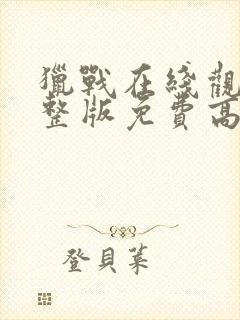 獵戰在綫觀
整版免費高
登貝葉